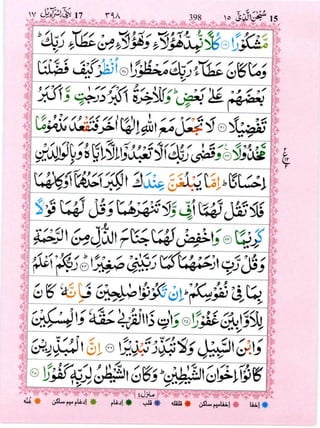 بَنِیْۤ اِسْرَآءِیْل ١٧ 17 ٣٩٨ 398 سُبْحٰنَ الَّذِیْۤ ١٥ 15
مَّشْكُوْرًا ۝١٩ كُلًّا نُّمِدُّ هٰۤؤُلَآءِ وَهٰۤؤُلَآءِ مِنْ عَطَآءِ رَبِّكَ ؕ
وَمَا كَانَ عَطَآءُ رَبِّكَ مَحْظُوْرًا ۝٢٠ اُنْظُرْ كَیْفَ فَضَّلْنَا
بَعْضَهُمْ عَلٰی بَعْضٍ ؕ وَلَلْاٰخِرَةُ اَكْبَرُ دَرَجٰتٍ وَّاَكْبَرُ
تَفْضِیْلًا ۝٢١ لَا تَجْعَلْ مَعَ اللّٰهِ اِلٰهًا اٰخَرَ فَتَقْعُدَ مَذْمُوْمًا
مَّخْذُوْلًا ۝٢٢ وَقَضٰی رَبُّكَ اَلَّا تَعْبُدُوْۤا اِلَّاۤ اِیَّاهُ وَبِالْوَالِدَیْنِ
اِحْسَانًا ؕ اِمَّا یَبْلُغَنَّ عِنْدَكَ الْكِبَرَ اَحَدُهُمَاۤ اَوْ كِلٰهُمَا
فَلَا تَقُلْ لَّهُمَاۤ اُفٍّ وَّلَا تَنْهَرْهُمَا وَقُلْ لَّهُمَا قَوْلًا
كَرِیْمًا ۝٢٣ وَاخْفِضْ لَهُمَا جَنَاحَ الذُّلِّ مِنَ الرَّحْمَةِ
وَقُلْ رَّبِّ ارْحَمْهُمَا كَمَا رَبَّیٰنِیْ صَغِیْرًا ۝٢٤ رَبُّكُمْ اَعْلَمُ
بِمَا فِیْ نُفُوْسِكُمْ ؕ اِنْ تَكُوْنُوْا صٰلِحِیْنَ فَاِنَّهٗ كَانَ
لِلْاَوَّابِیْنَ غَفُوْرًا ۝٢٥ وَاٰتِ ذَا الْقُرْبٰی حَقَّهٗ وَالْمِسْكِیْنَ
وَابْنَ السَّبِیْلِ وَلَا تُبَذِّرْ تَبْذِیْرًا ۝٢٦ اِنَّ الْمُبَذِّرِیْنَ
كَانُوْۤا اِخْوَانَ الشَّیٰطِیْنِ ؕ وَكَانَ الشَّیْطٰنُ لِرَبِّهٖ كَفُوْرًا ۝٢٧
منزل٤
اِخفا اخفامیم ساکن قلقله قلب اِدغام اِدغام میم ساکن غنّه